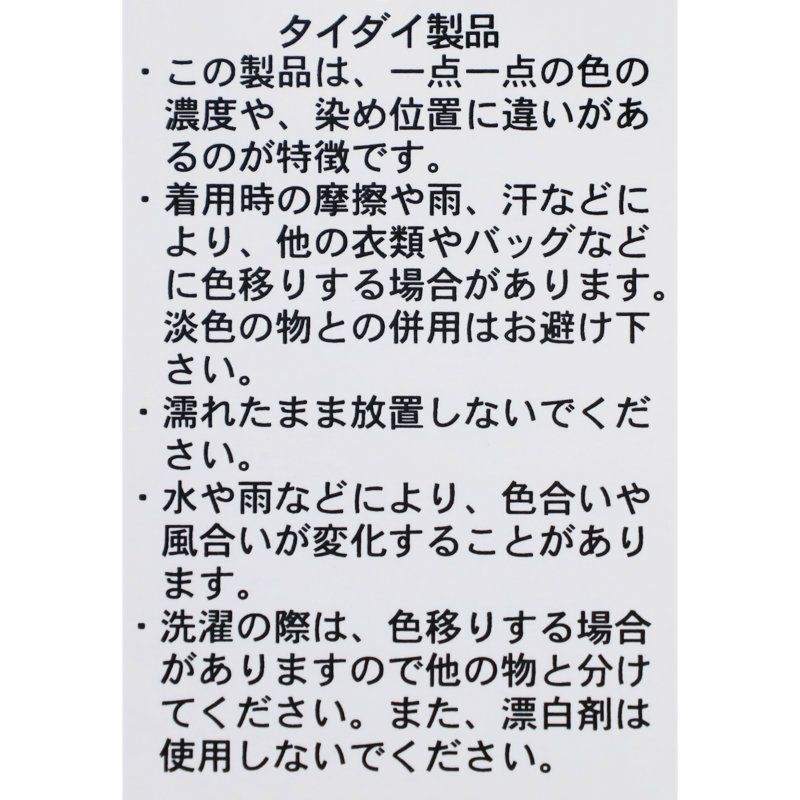 タイダイ製品
・この製品は、一点一点の色の
濃度や、染め位置に違いがあ
るのが特徴です。
・着用時の摩擦や雨、汗などに
より、他の衣類やバッグなど
に色移りする場合があります。
淡色の物との併用はお避け下
さい。
・濡れたまま放置しないでくだ
さい。
・水や雨などにより、色合いや
風合いが変化することがあり
ます。
・洗濯の際は、色移りする場合
がありますので他の物と分け
てください。また、漂白剤は
使用しないでください。